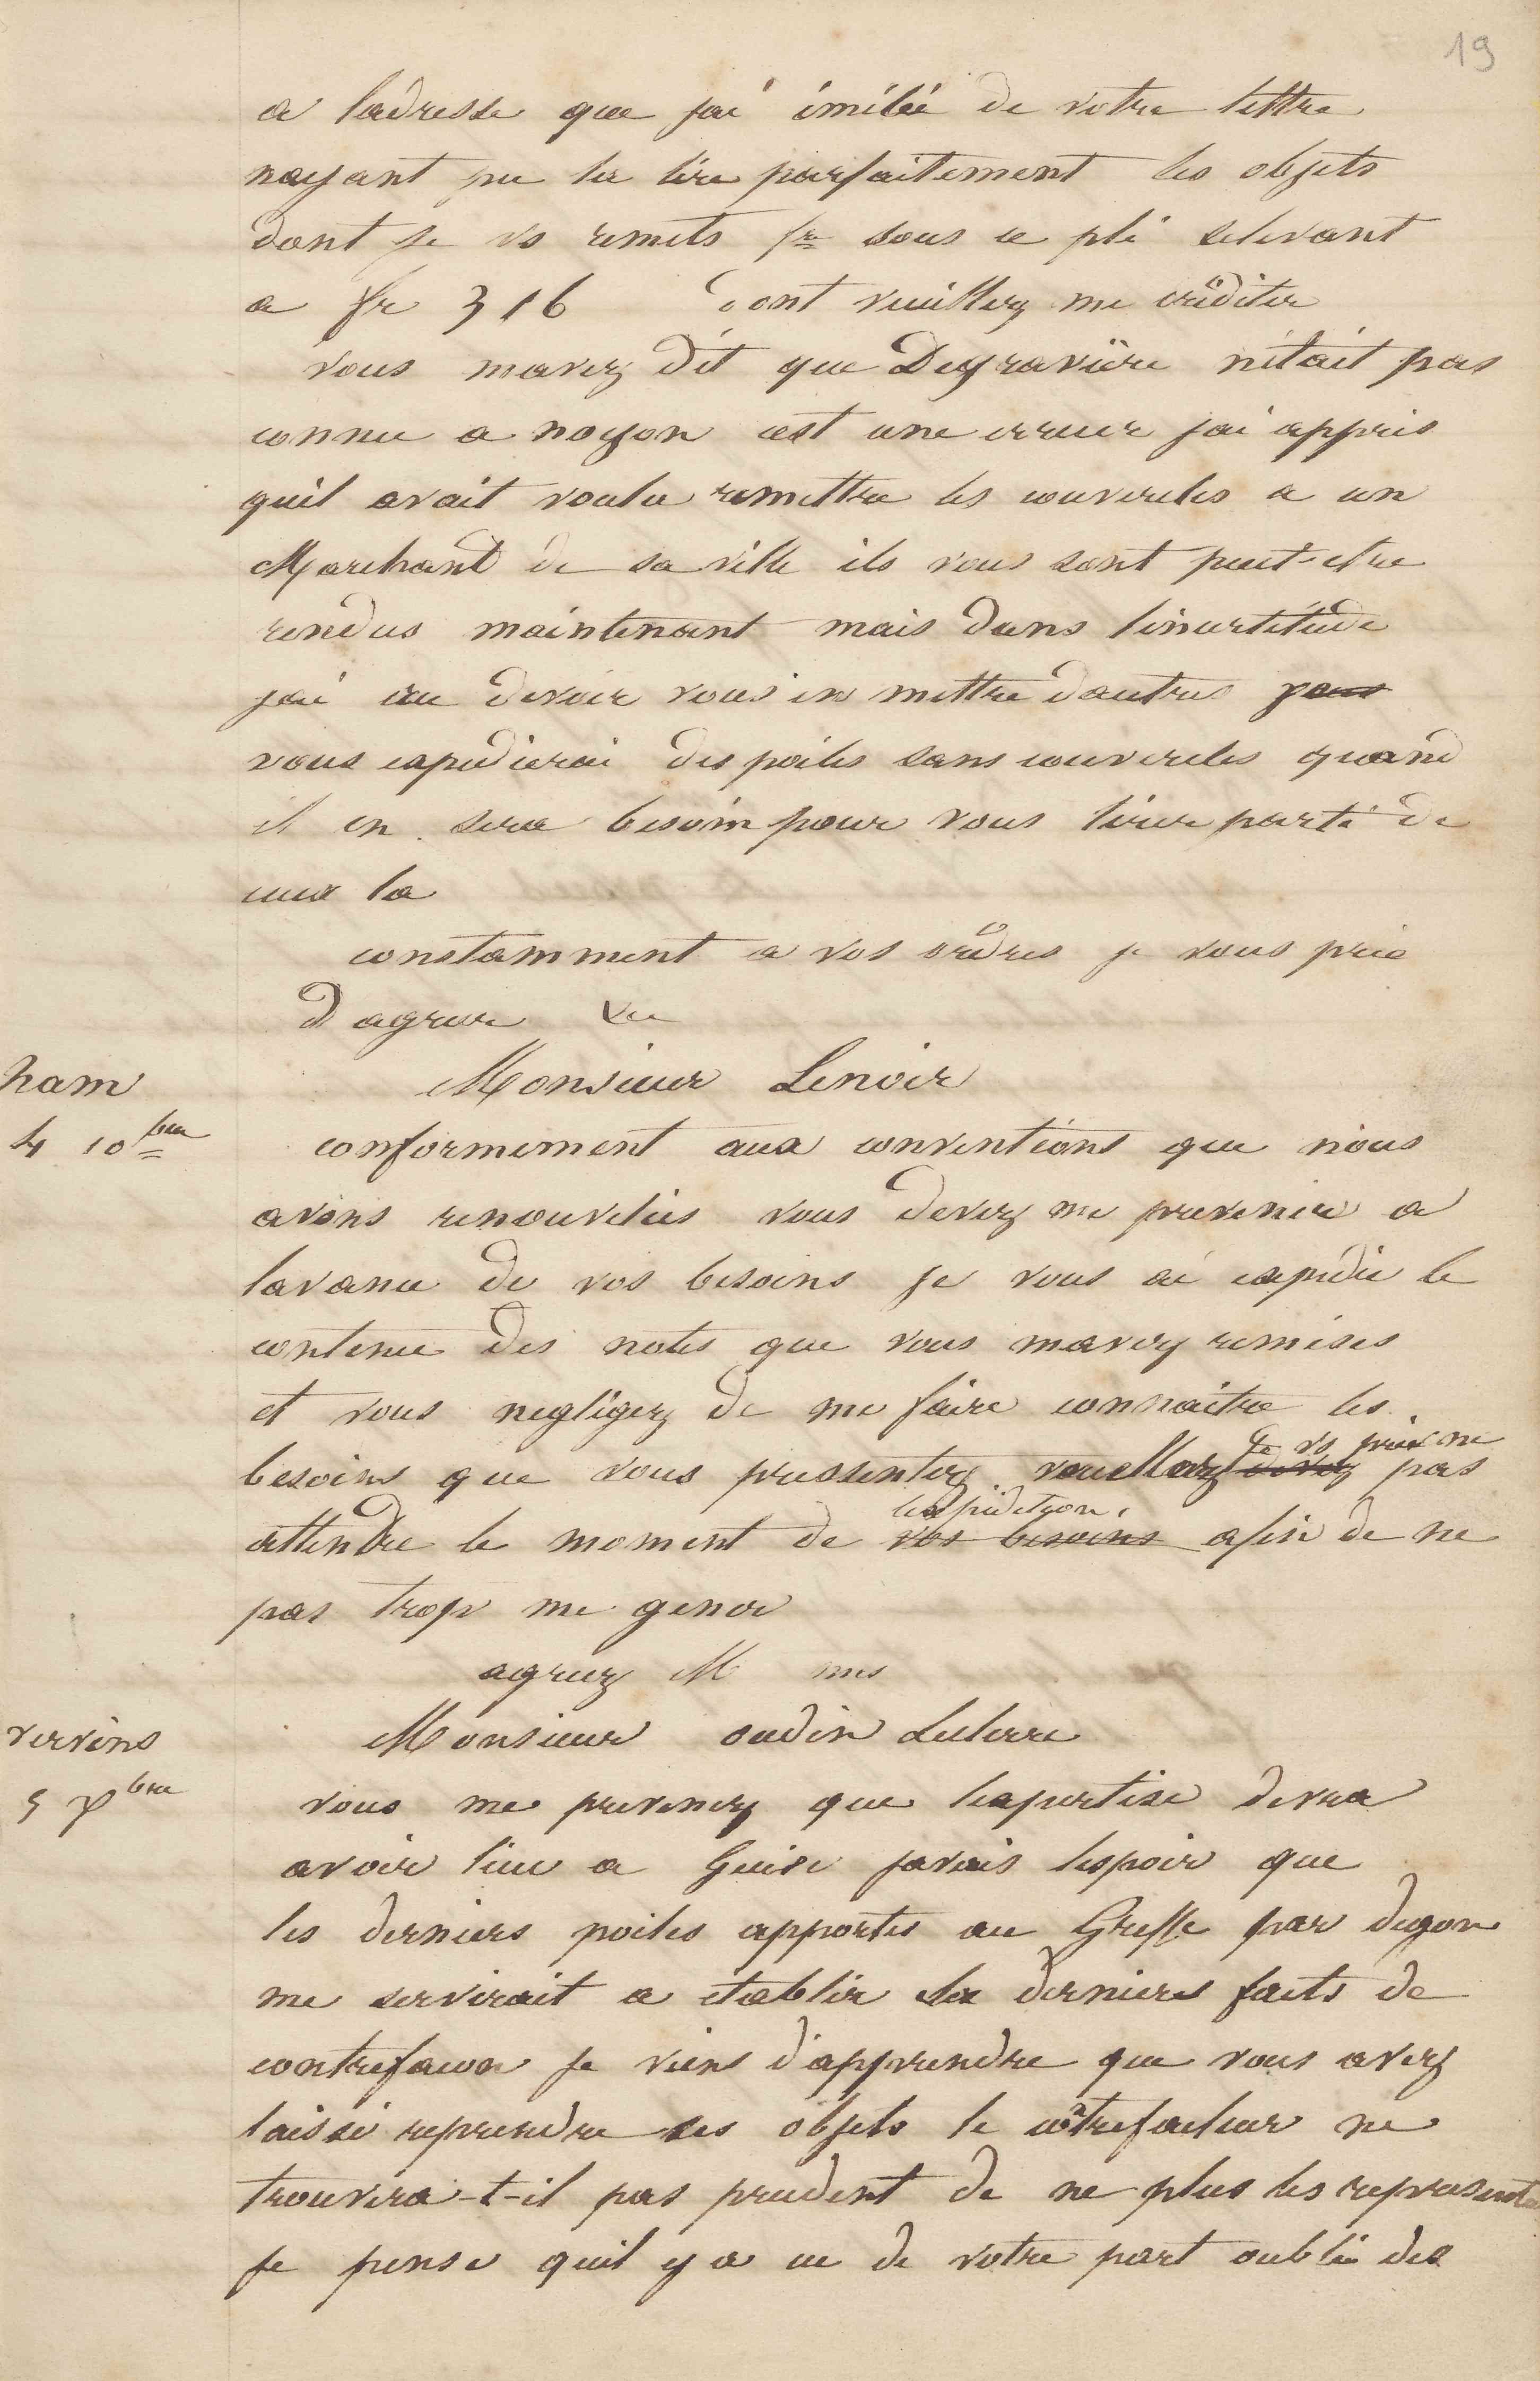 19
a ladresse que jai imitée de votre lettre
nayant pu la lire parfaitement les objets
dont je vs remets fre sous ce pli selevant
a fr 316 dont veuillez me créditer
vous mavez dit que Degravière nétait pas
connu a noyon cest une erreur jai appris
quil avait voulu remettre les couvercles a un
Marchant de sa ville ils vous sont peut-etre
rendus maintenant mais dans lincertitude
jai cru devoir vous en mettre dautres
vous expedierai des poiles sans couvercles quand
il en sera besoin pour vous tirer parti de
ceux la
constamment a vos ordres je vous prie
d agreer
ham
Monsieur Lenoir
4 10bre
conformement aux conventions que nous
avons renouvelées vous devez me prevenir a
lavance de vos besoins je vous ai expédié le
contenu des notes que vous mavez remises
et vous negligez de me faire connaitre les
je vs prie ne
besoins que vous pressentez veuillez devez pas
lexpidetion
attendre le moment de vos besoins afin de ne
pas trop me gener
agreez M mes
vervins
Monsieur oudin Leclerc
5 Xbre
vous me prevenez que lexpertise devra
avoir lieu a Guise javais lespoir que
les derniers poiles apportés au Greffe par degon
me servirait a etablir les derniers faits de
contrefacon je viens d'apprendre que vous avez
laissé reprendre ses objets le côtrefacteur ne
trouvera-t-il pas prudent de ne plus les representer
je pense quil y a eu de votre part oubli des